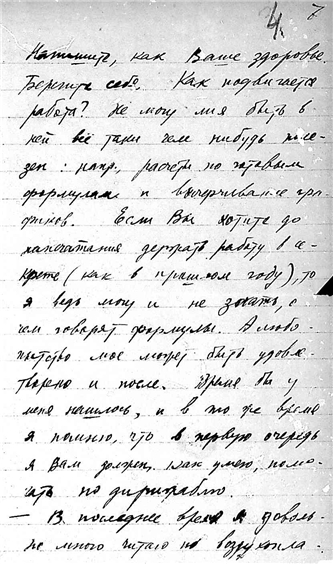 4. 7
Напишите, как Ваше здоровье.
Берегите себя. Как подвигается
работа? Не могу ли я быть в
ней все таки чем нибудь поле-
зен: напр., расчеты по готовым
формулам и вычерчивание гра-
фиков. Если Вы хотите до
напечатания держать работу в се-
крете (как в прошлом году), то
я ведь могу и не знать, о
чем говорят формулы. А любо-
пытство мое может быть удовле-
творено и после. Время бы у
меня нашлось, и в то же время
я помню, что в первую очередь
я Вам должен, как умею, помо-
гать по дирижаблю.
— В последнее время я доволь-
но много читаю по воздухопла-